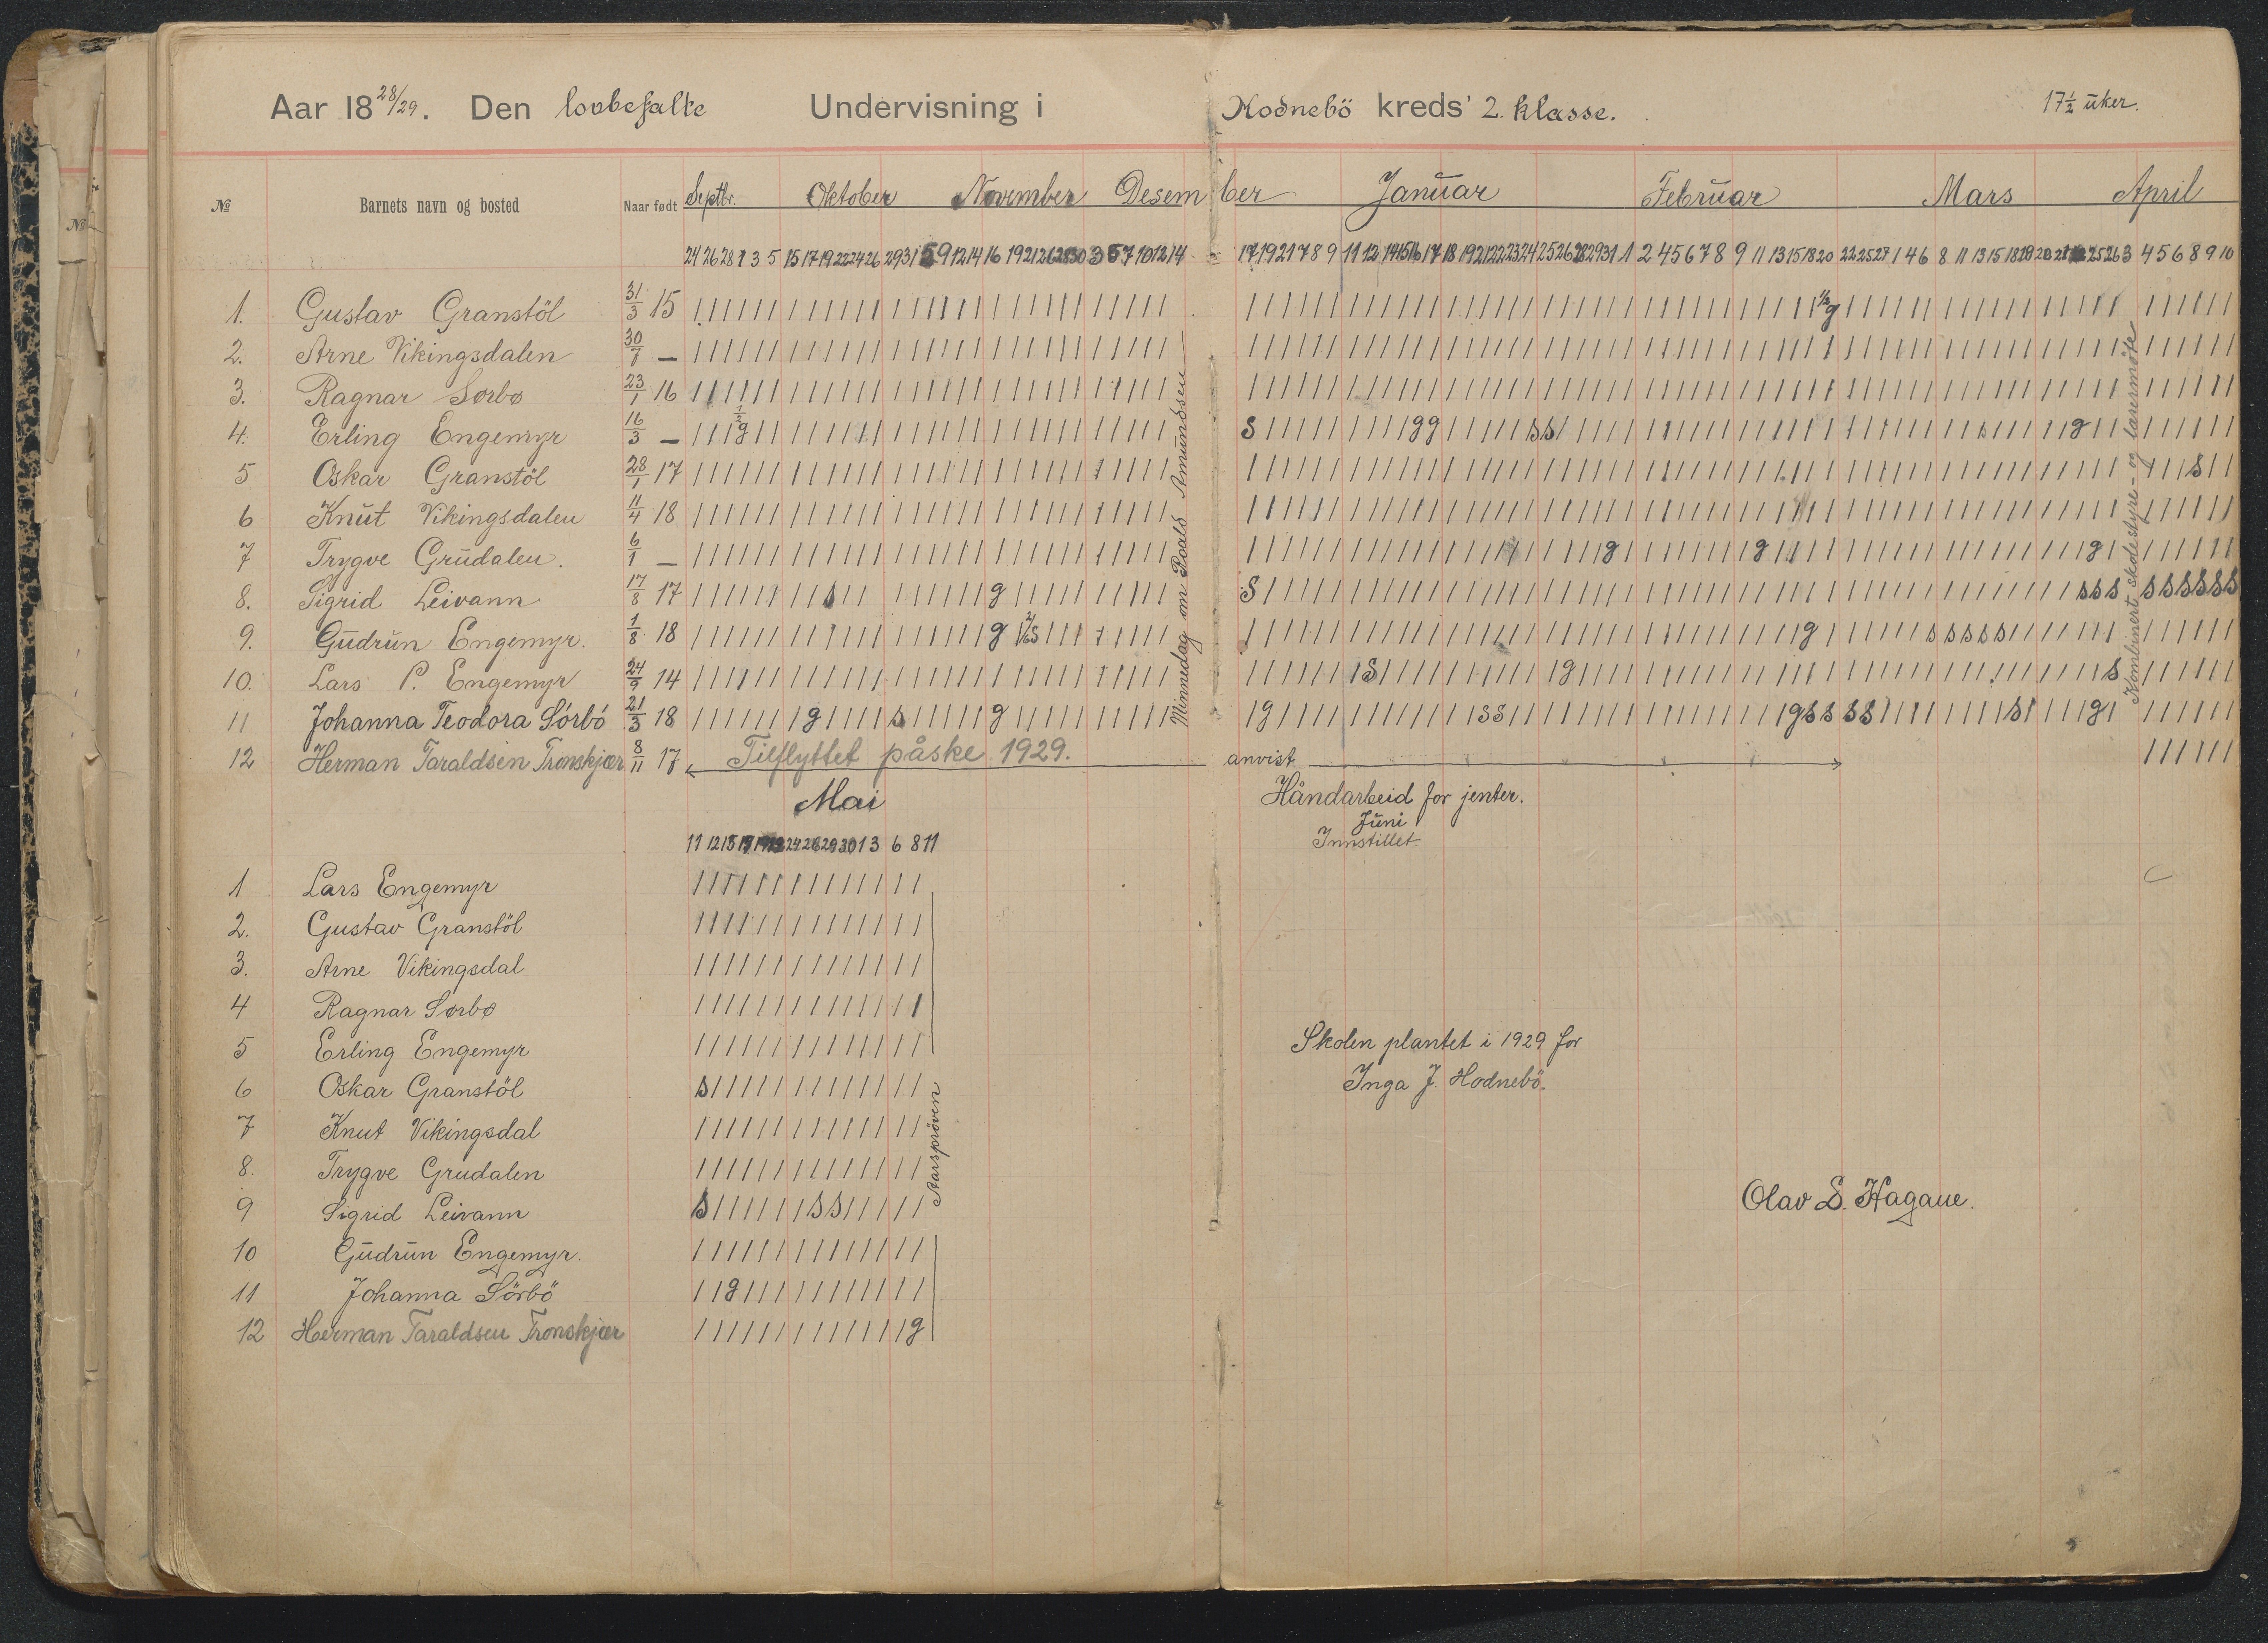 Aar 18 28/29. Den lovbefalte Undervisning i Hodnebö kreds' 2. klasse. 17½ uker.
№ Barnets navn og bosted Naar født Septbr. Oktober November Desember Januar Februar Mars April
24 26 28 1 3 5 15 17 19 22 24 26 29 31 5 9 12 14 16 19 21 26 28 30 3 5 7 10 12 14 17 19 21 7 8 9 11 12 14 15 16 17 18 19 21 22 23 24 25 26 28 29 31 1 2 4 5 6 7 8 9 11 13 15 18 20 22 25 27 1 4 6 8 11 13 15 18 19 20 25 26 3 4 5 6 8 9 10
1. Gustav Granstöl 31/3 15 ½ g
2. Arne Vikingsdalen 30/7 —
3. Ragnar Sørbø 23/1 16
4. Erling Engemyr 16/3 — ½ g s g g s s g
5 Oskar Granstöl 28/1 17 s
6 Knut Vikingsdalen 11/4 18
7 Trygve Grudalen. 6/1 — g g g
8. Sigrid Leivann 17/8 17 s g s s s s s s s s s s
9. Gudrun Engemyr. 1/8 18 g s g s s s s s
10. Lars P. Engemyr 24/9 14 s g s
11 Johanna Teodora Sörbö 21/3 18 g s g g s s g s s s s s g
12 Herman Taraldsen Tronskjær 8/11 17 Tilflyttet påske 1929. anvist
Minnedag om Roald Amundsen
Kombinert skolestyre- og læremøte
Mai
Håndarbeid for jenter.
Juni
Innstillet.
11 12 15 24 26 29 30 1 3 6 8 11
1 Lars Engemyr
2. Gustav Granstöl
3. Arne Vikingsdal
4 Ragnar Sørbø
5 Erling Engemyr
6 Oskar Granstöl s
7 Knut Vikingsdal
8. Trygve Grudalen
9 Sigrid Leivann s s s
10 Gudrun Engemyr.
11 Johanna Sörbö g
12 Herman Taraldsen Tronskjær g
Aarspröven
Skolen plantet i 1929 for
Inga J. Hodnebö.
Olav S. Hagane.
№